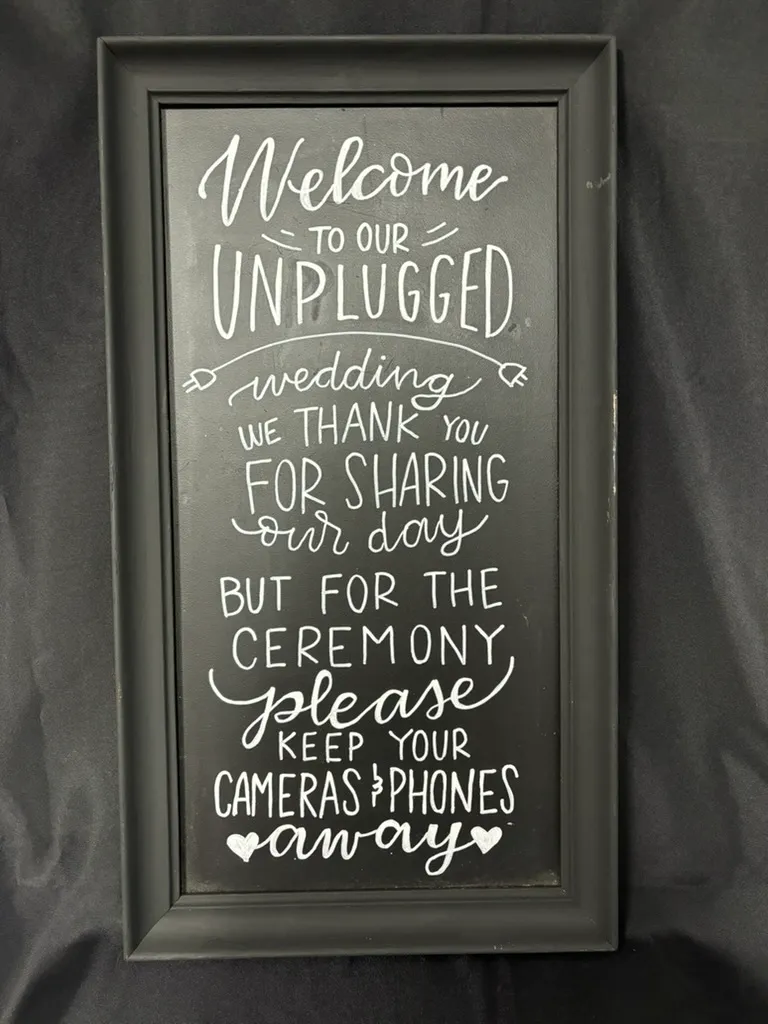 Welcome
TO OUR
UNPLUGGED
wedding
WE THANK YOU
FOR SHARING
our day
BUT FOR THE
CEREMONY
please
KEEP YOUR
CAMERAS & PHONES
away